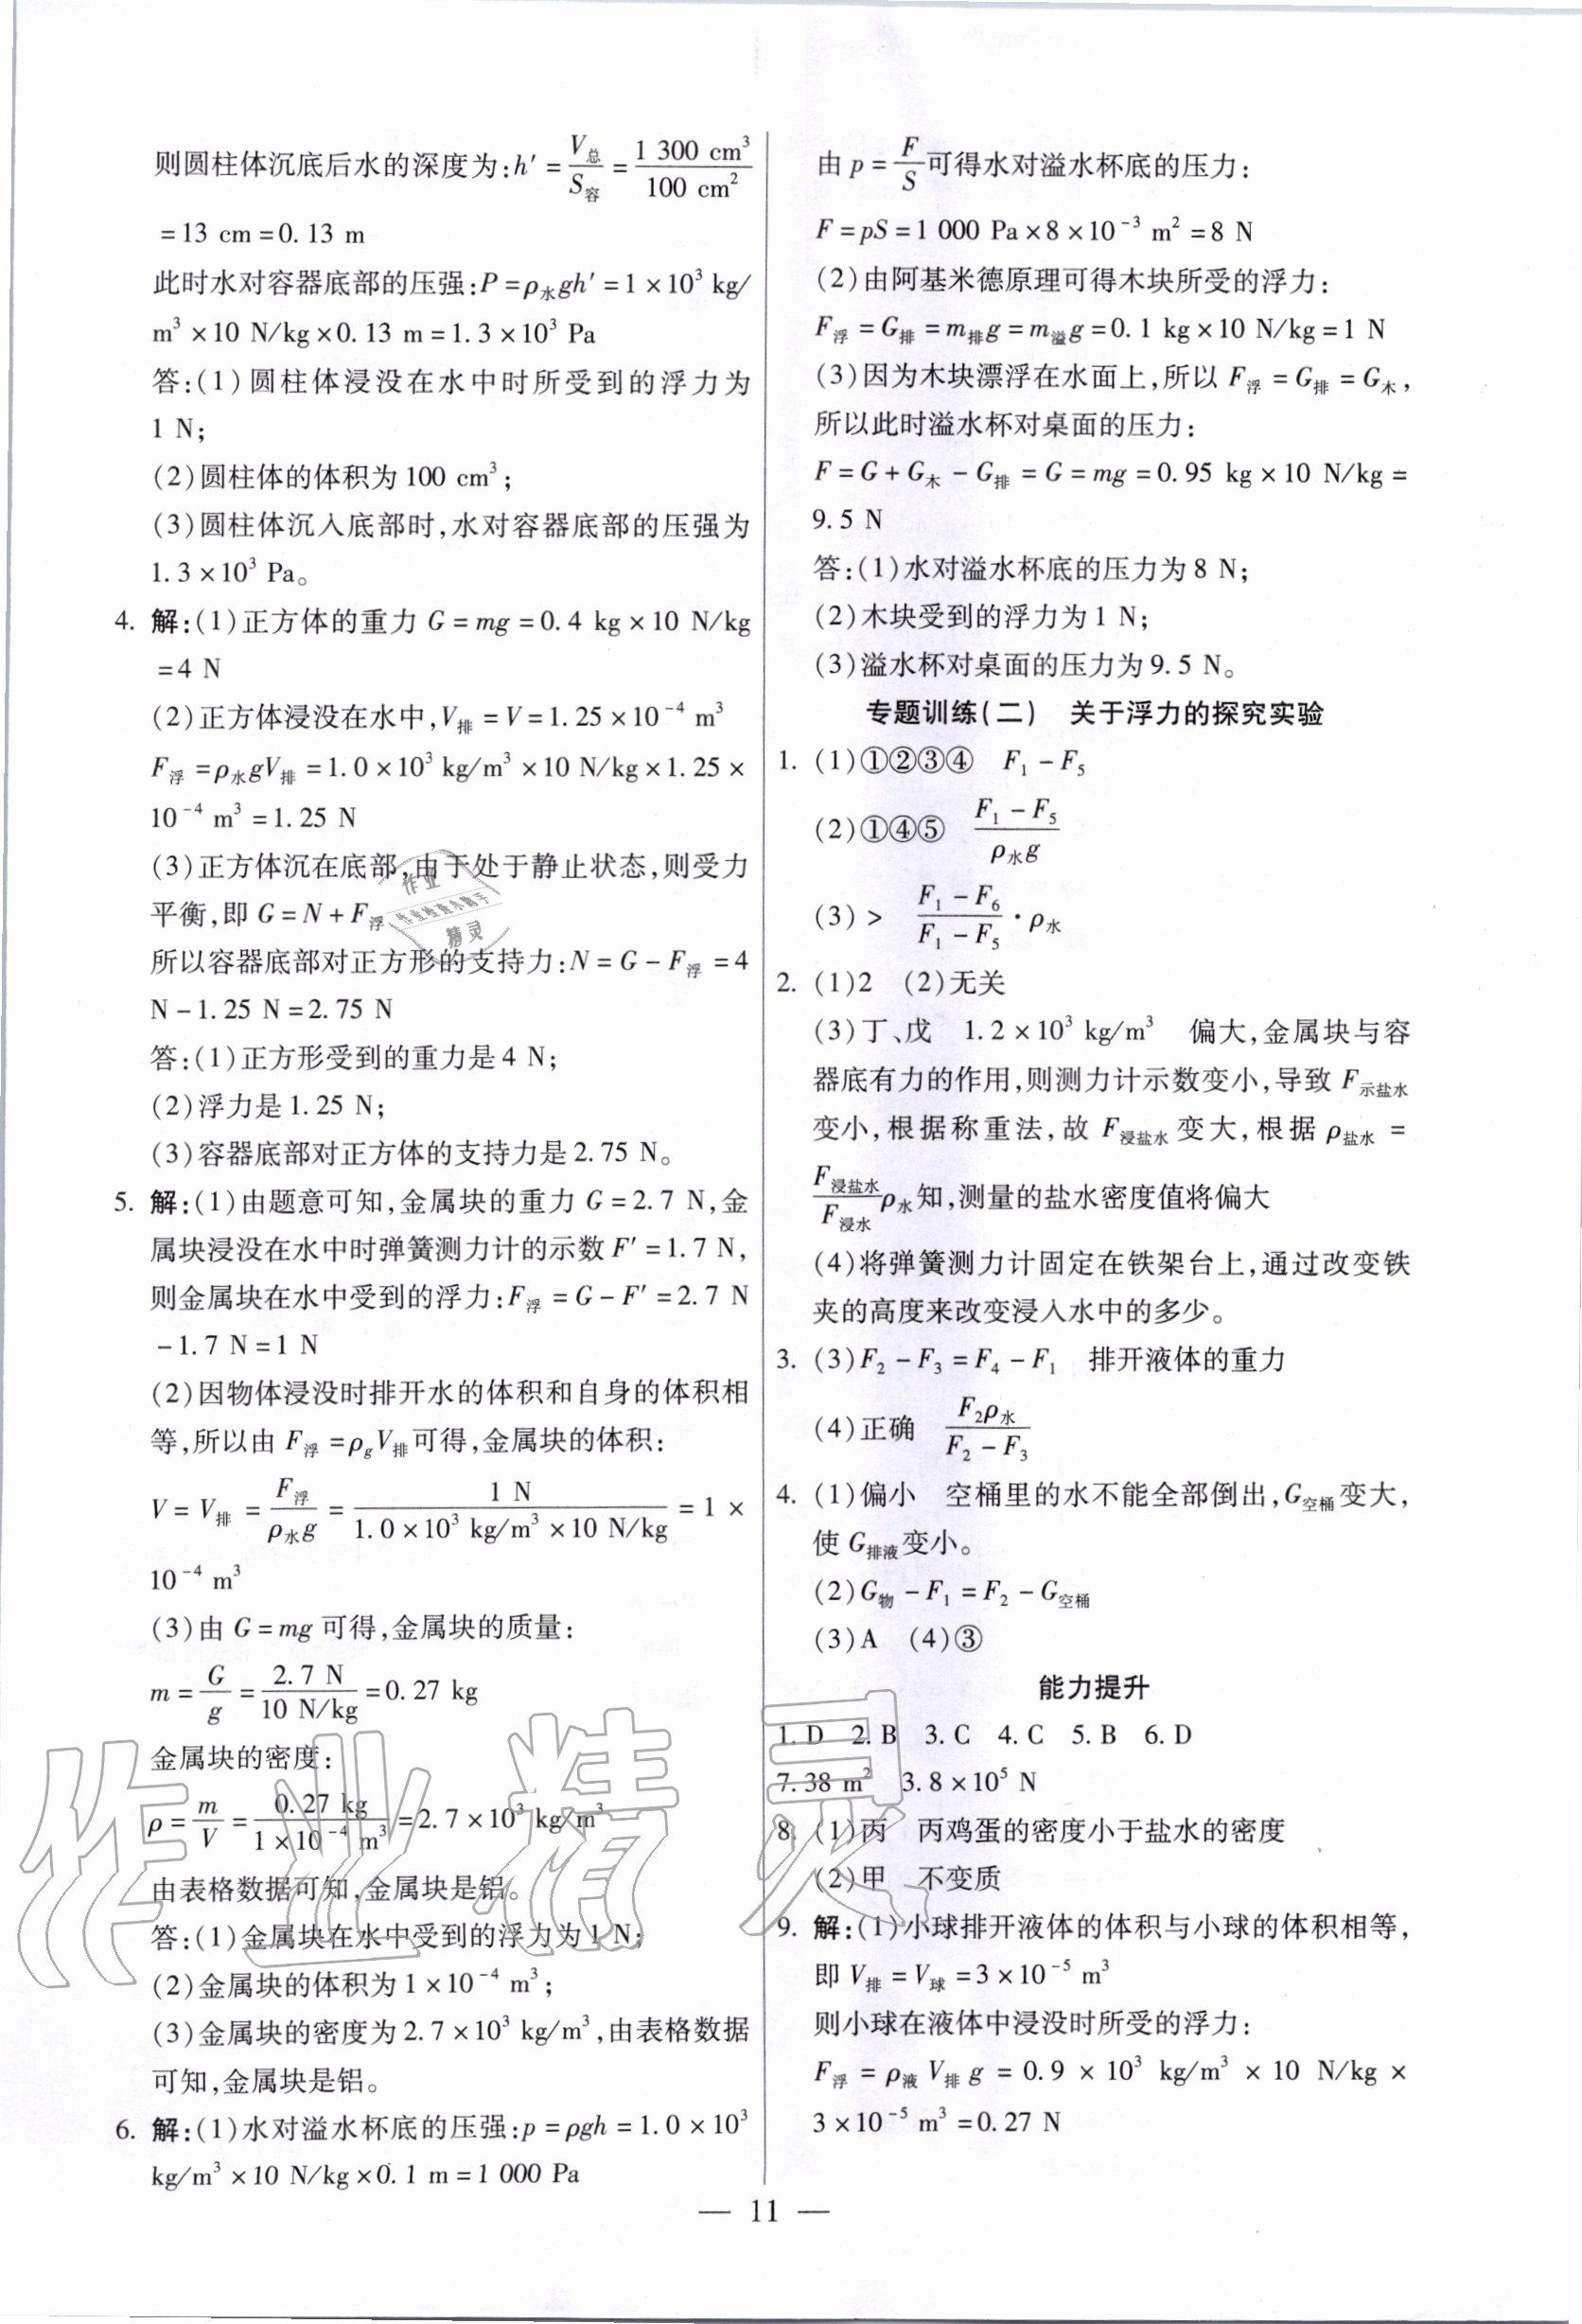 则圆柱体沉底后水的深度为:h′=V总/S容=1 300 cm³/100 cm²
=13 cm=0.13 m
此时水对容器底部的压强:P=ρ水gh′=1×10³ kg/
m³×10 N/kg×0.13 m=1.3×10³ Pa
答:(1)圆柱体浸没在水中时所受到的浮力为
1 N;
(2)圆柱体的体积为100 cm³;
(3)圆柱体沉入底部时,水对容器底部的压强为
1.3×10³ Pa。
4. 解:(1)正方体的重力 G=mg=0.4 kg×10 N/kg
=4 N
(2)正方体浸没在水中,V排=V=1.25×10⁻⁴ m³
F浮=ρ水gV排=1.0×10³ kg/m³×10 N/kg×1.25×
10⁻⁴ m³=1.25 N
(3)正方体沉在底部,由于处于静止状态,则受力
平衡,即 G=N+F浮
所以容器底部对正方形的支持力:N=G-F浮=4
N-1.25 N=2.75 N
答:(1)正方形受到的重力是4 N;
(2)浮力是1.25 N;
(3)容器底部对正方体的支持力是2.75 N。
5. 解:(1)由题意可知,金属块的重力 G=2.7 N,金
属块浸没在水中时弹簧测力计的示数F′=1.7 N,
则金属块在水中受到的浮力:F浮=G-F′=2.7 N
-1.7 N=1 N
(2)因物体浸没时排开水的体积和自身的体积相
等,所以由 F浮=ρgV排可得,金属块的体积:
V=V排=F浮/ρ水g=1 N/1.0×10³ kg/m³×10 N/kg=1×
10⁻⁴ m³
(3)由 G=mg 可得,金属块的质量:
m=G/g=2.7 N/10 N/kg=0.27 kg
金属块的密度:
ρ=m/V=0.27 kg/1×10⁻⁴ m³=2.7×10³ kg/m³
由表格数据可知,金属块是铝。
答:(1)金属块在水中受到的浮力为1 N;
(2)金属块的体积为1×10⁻⁴ m³;
(3)金属块的密度为2.7×10³ kg/m³,由表格数据
可知,金属块是铝。
6. 解:(1)水对溢水杯底的压强:p=ρgh=1.0×10³
kg/m³×10 N/kg×0.1 m=1 000 Pa
由p=F/S可得水对溢水杯底的压力:
F=pS=1 000 Pa×8×10⁻³ m²=8 N
(2)由阿基米德原理可得木块所受的浮力:
F浮=G排=m排g=m溢g=0.1 kg×10 N/kg=1 N
(3)因为木块漂浮在水面上,所以 F浮=G排=G木,
所以此时溢水杯对桌面的压力:
F=G+G木-G排=G=mg=0.95 kg×10 N/kg=
9.5 N
答:(1)水对溢水杯底的压力为8 N;
(2)木块受到的浮力为1 N;
(3)溢水杯对桌面的压力为9.5 N。
专题训练(二) 关于浮力的探究实验
1. (1)①②③④ F₁-F₅
(2)①④⑤ F₁-F₅/ρ水g
(3)> F₁-F₆/F₁-F₅·ρ水
2. (1)2 (2)无关
(3)丁、戊 1.2×10³ kg/m³ 偏大,金属块与容
器底有力的作用,则测力计示数变小,导致F示盐水
变小,根据称重法,故F浸盐水变大,根据ρ盐水=
F浸盐水/F浸水ρ水知,测量的盐水密度值将偏大
(4)将弹簧测力计固定在铁架台上,通过改变铁
夹的高度来改变浸入水中的多少。
3. (3)F₂-F₃=F₄-F₁ 排开液体的重力
(4)正确 F₂ρ水/F₂-F₃
4. (1)偏小 空桶里的水不能全部倒出,G空桶变大,
使G排液变小。
(2)G物-F₁=F₂-G空桶
(3)A (4)③
能力提升
1. D 2. B 3. C 4. C 5. B 6. D
7. 38 m² 3.8×10⁵ N
8. (1)丙 丙鸡蛋的密度小于盐水的密度
(2)甲 不变质
9. 解:(1)小球排开液体的体积与小球的体积相等,
即V排=V球=3×10⁻⁵ m³
则小球在液体中浸没时所受的浮力:
F浮=ρ液V排g=0.9×10³ kg/m³×10 N/kg×
3×10⁻⁵ m³=0.27 N
— 11 —
作业
作业检查小助手
精灵
作业精灵